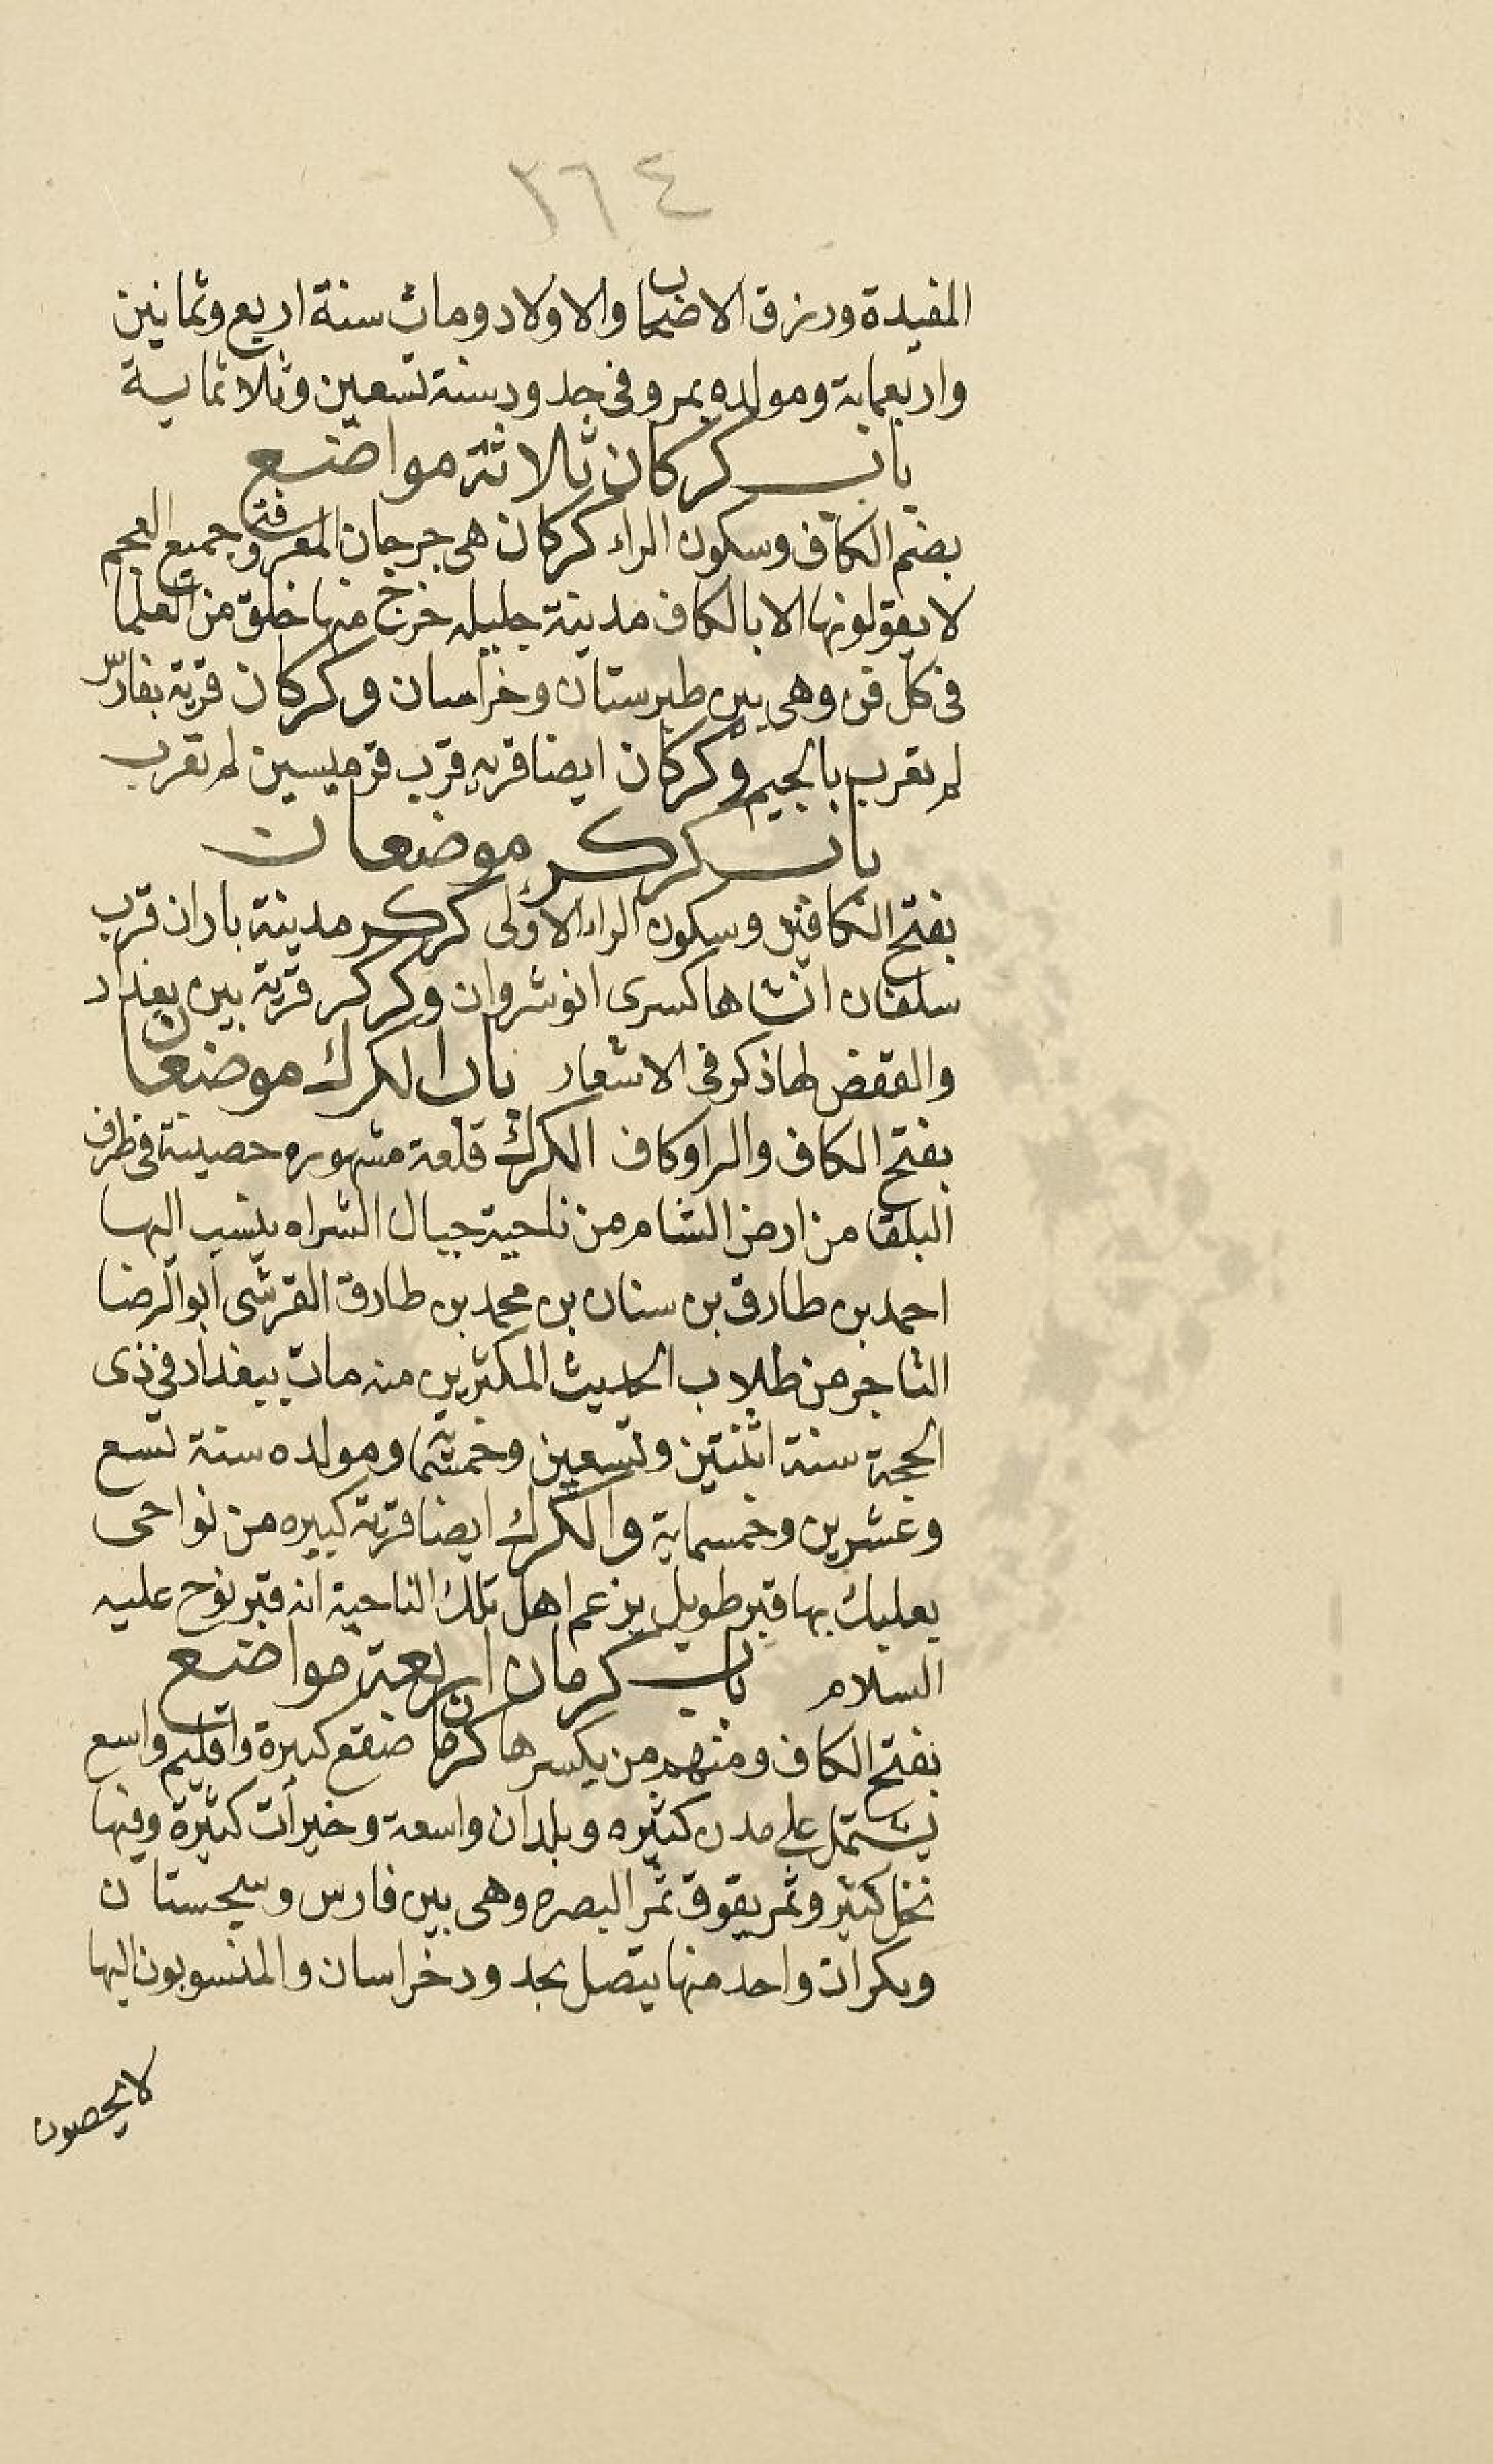 ٣٦٤
المفيدة ورزق الاضحاب والاولاد ومات سنة اربع وثمانين
واربعماية ومولده بمرو فى حدود سنة تسعين وثلاثماية
باب كركان ثلاثة مواضع
بضم الكاف وسكون الراء كركان هى جرجان المعروفة وجميع العجم
لا يقولونها الا بالكاف مدينة جليله خرج منها خلق من العلما
فى كل فن وهى بين طبرستان وخراسان وكركان قرية بفارس
لم تعرب بالجيم وكركان ايضا قريه قرب قرميسين لم تعرب
باب كركر موضعان
بفتح الكافين وسكون الراء الاولى كركر مدينة باران قرب
سلقان انشاها كسرى انوشروان وكركر قرية بين بغداد
والقفض لها ذكر فى الاشعار باب الكرك موضعان
بفتح الكاف والرا وكاف الكرك قلعة مشهوره حصينة فى طرف
البلقا من ارض الشام من ناحية جبال الشراه ينسب اليها
احمد بن طارق بن سنان بن محمد بن طارق القرشى ابو الرضا
التاجر من طلاب الحديث المكثرين منه مات ببغداد فى ذى
الحجة سنة اثنتين وتسعين وخمسماية ومولده سنة تسع
وعشرين وخمسماية والكرك ايضا قرية كبيره من نواحى
بعلبك بها قبر طويل يزعم اهل تلك الناحية انه قبر نوح عليه
السلام باب كرمان اربعة مواضع
بفتح الكاف ومنهم من يكسرها كرمان ضقع كبيرة واقليم واسع
يشتمل على مدن كثيره وبلدان واسعة وخيرات كثيرة وفيها
نخل كثير وتمر يقوق تمر البصره وهى بين فارس وسجستان
وبكرات واحد منها يتصل بحدود خراسان والمنسوبون اليها
لا يحصون